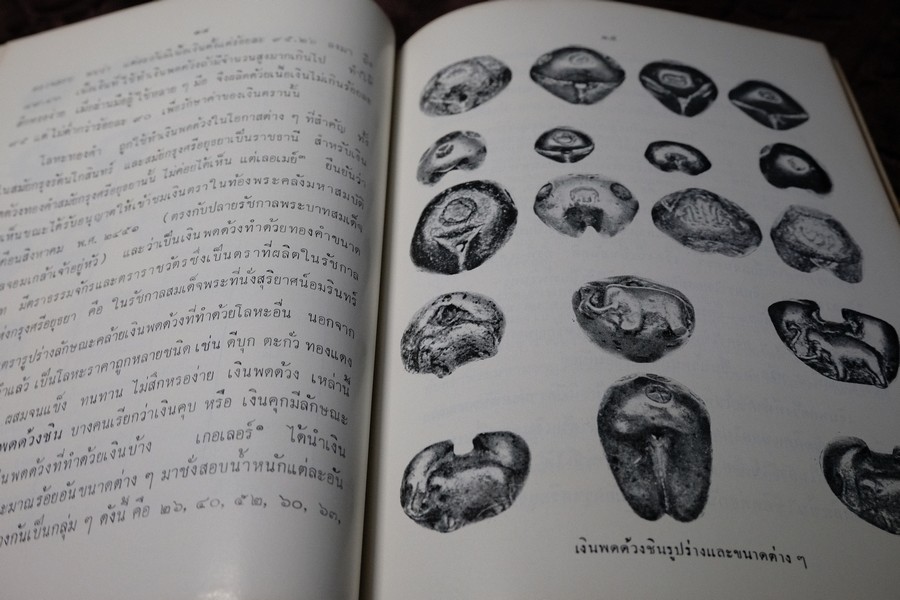 ๑๔
ตรา
เนื้อเงินที่ใช้ทำเงินพดด้วงมีจำนวนสูงมากเกินไป
สึกหรอง่าย เมื่อผ่านมือผู้ใช้หลาย ๆ มือ จึงผลิตด้วยเนื้อเงินไม่เกินร้อยละ
๙๕ แต่ไม่ต่ำกว่าร้อยละ ๙๐ เพื่อรักษาค่าของเงินตรานั้น
โลหะทองคำ ถูกใช้ทำเงินพดด้วงในโอกาสต่าง ๆ ที่สำคัญ ทั้ง
ในสมัยกรุงรัตนโกสินทร์ และสมัยกรุงศรีอยุธยาเป็นราชธานี สำหรับเงิน
พดด้วงทองคำสมัยกรุงศรีอยุธยานั้น ไม่ค่อยได้เห็น แต่เลอเมย์ ยืนยันว่า
เห็นขณะได้รับอนุญาตให้เข้าชมเงินตราในท้องพระคลังมหาสมบัติ
เดือนสิงหาคม พ.ศ. ๒๔๕๑ (ตรงกับปลายรัชกาลพระบาทสมเด็จ
จอมเกล้าเจ้าอยู่หัว) และว่าเป็นเงินพดด้วงทำด้วยทองคำขนาด
มีตราธรรมจักรและตราราชวัตรซึ่งเป็นตราที่ผลิตในรัชกาล
แห่งกรุงศรีอยุธยา คือ ในรัชกาลสมเด็จพระที่นั่งสุริยาศน์อมรินทร์
ตรารูปร่างลักษณะคล้ายเงินพดด้วงที่ทำด้วยโลหะอื่น นอกจาก
แล้ว เป็นโลหะราคาถูกหลายชนิด เช่น ดีบุก ตะกั่ว ทองแดง
ผสมจนแข็ง ทนทาน ไม่สึกหรอง่าย เงินพดด้วง เหล่านี้
พดด้วงชิน บางคนเรียกว่าเงินคุบ หรือ เงินคุกมีลักษณะ
เงินพดด้วงที่ทำด้วยเงินบ้าง เกอเลอร์๑ ได้นำเงิน
ประมาณร้อยอันขนาดต่าง ๆ มาชั่งสอบน้ำหนักแต่ละอัน
ต่างกันเป็นกลุ่ม ๆ ดังนี้ คือ ๒๖, ๔๐, ๕๒, ๖๐, ๖๓,
๑๕
เงินพดด้วงชินรูปร่างและขนาดต่าง ๆ